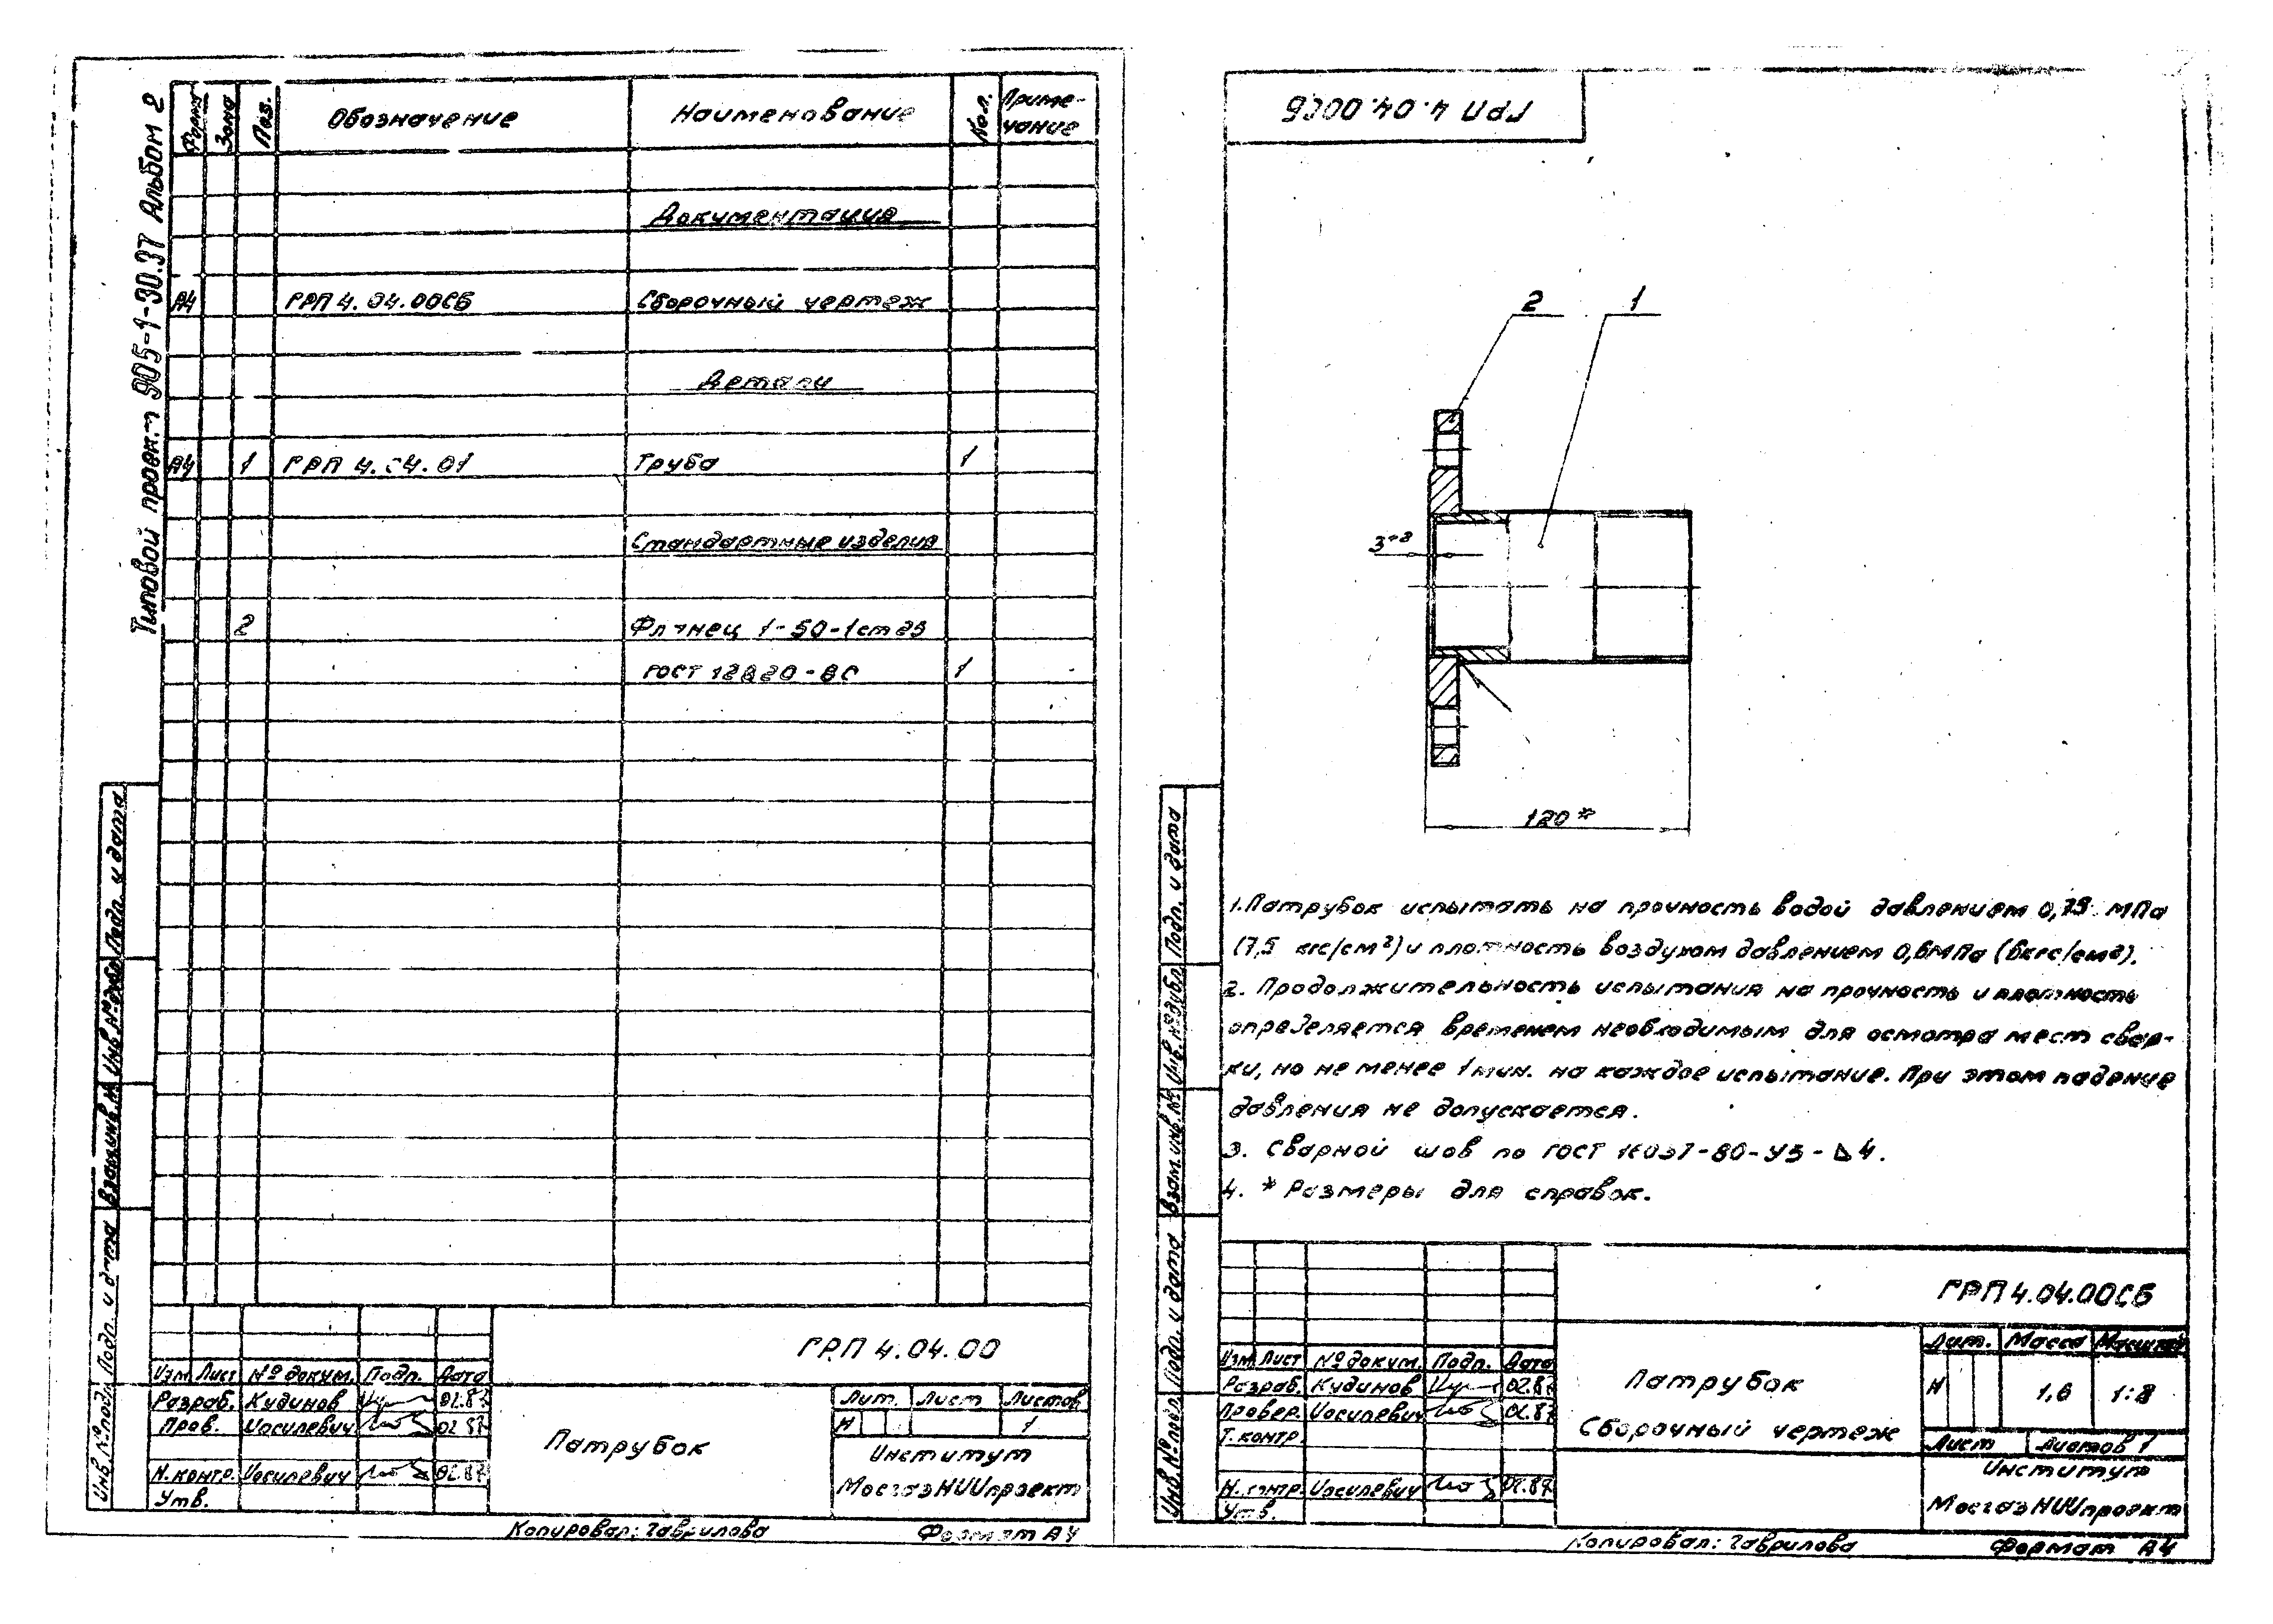 Типовой проект 905-1-30.37 Альбом 2
Формат Зона Поз. Обозначение Наименование Кол. Приме-
чание
Документация
А4 ГРП 4.04.00СБ Сборочный чертеж
Детали
А4 1 ГРП 4.04.01 Труба 1
Стандартные изделия
2 Фланец 1-50-1 ст 25
ГОСТ 12820-80 1
Инв. № подл. Подп. и дата Взам. инв. № Инв. № дубл. Подп. и дата
ГРП 4.04.00
Изм Лист № докум. Подп. Дата
Разраб. Кудинов 02.87
Пров. Иосилевич 02.87
Н. контр. Иосилевич 02.87
Утв.
Патрубок
Лит. Лист Листов
И 1
Институт
МосгазНИИпроект
Копировал: Гаврилова Формат А4
ГРП 4.04.00СБ
2 1
3+3
120*
1. Патрубок испытать на прочность водой давлением 0,75 МПа
(7,5 кгс/см²) и плотность воздухом давлением 0,6МПа (6кгс/см²).
2. Продолжительность испытания на прочность и плотность
определяется временем необходимым для осмотра мест свар-
ки, но не менее 1 мин. на каждое испытание. При этом падение
давления не допускается.
3. Сварной шов по ГОСТ 16037-80-У5-⊿4.
4. * Размеры для справок.
Инв. № подл. Подп. и дата Взам. инв. № Инв. № дубл. Подп. и дата
ГРП 4.04.00СБ
Изм Лист № докум. Подп. Дата
Разраб. Кудинов 02.87
Провер. Иосилевич 02.87
Т. контр.
Н. контр. Иосилевич 02.87
Утв.
Патрубок
Сборочный чертеж
Лит. Масса Масштаб
И 1,6 1:2
Лист Листов 1
Институт
МосгазНИИпроект
Копировал: Гаврилова Формат А4